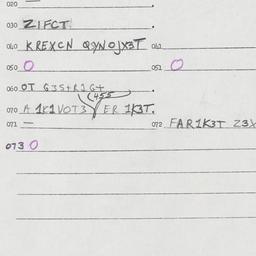 020 —
030 ZIFCT
040 KREXCN QYNOJX3T 041
050 O 051 O
060 OT G3S+R1G+
(455)
070 A 1K1VOT3 ER 1K3T.
071 — 072 FAR1K3T Z3X
073 O